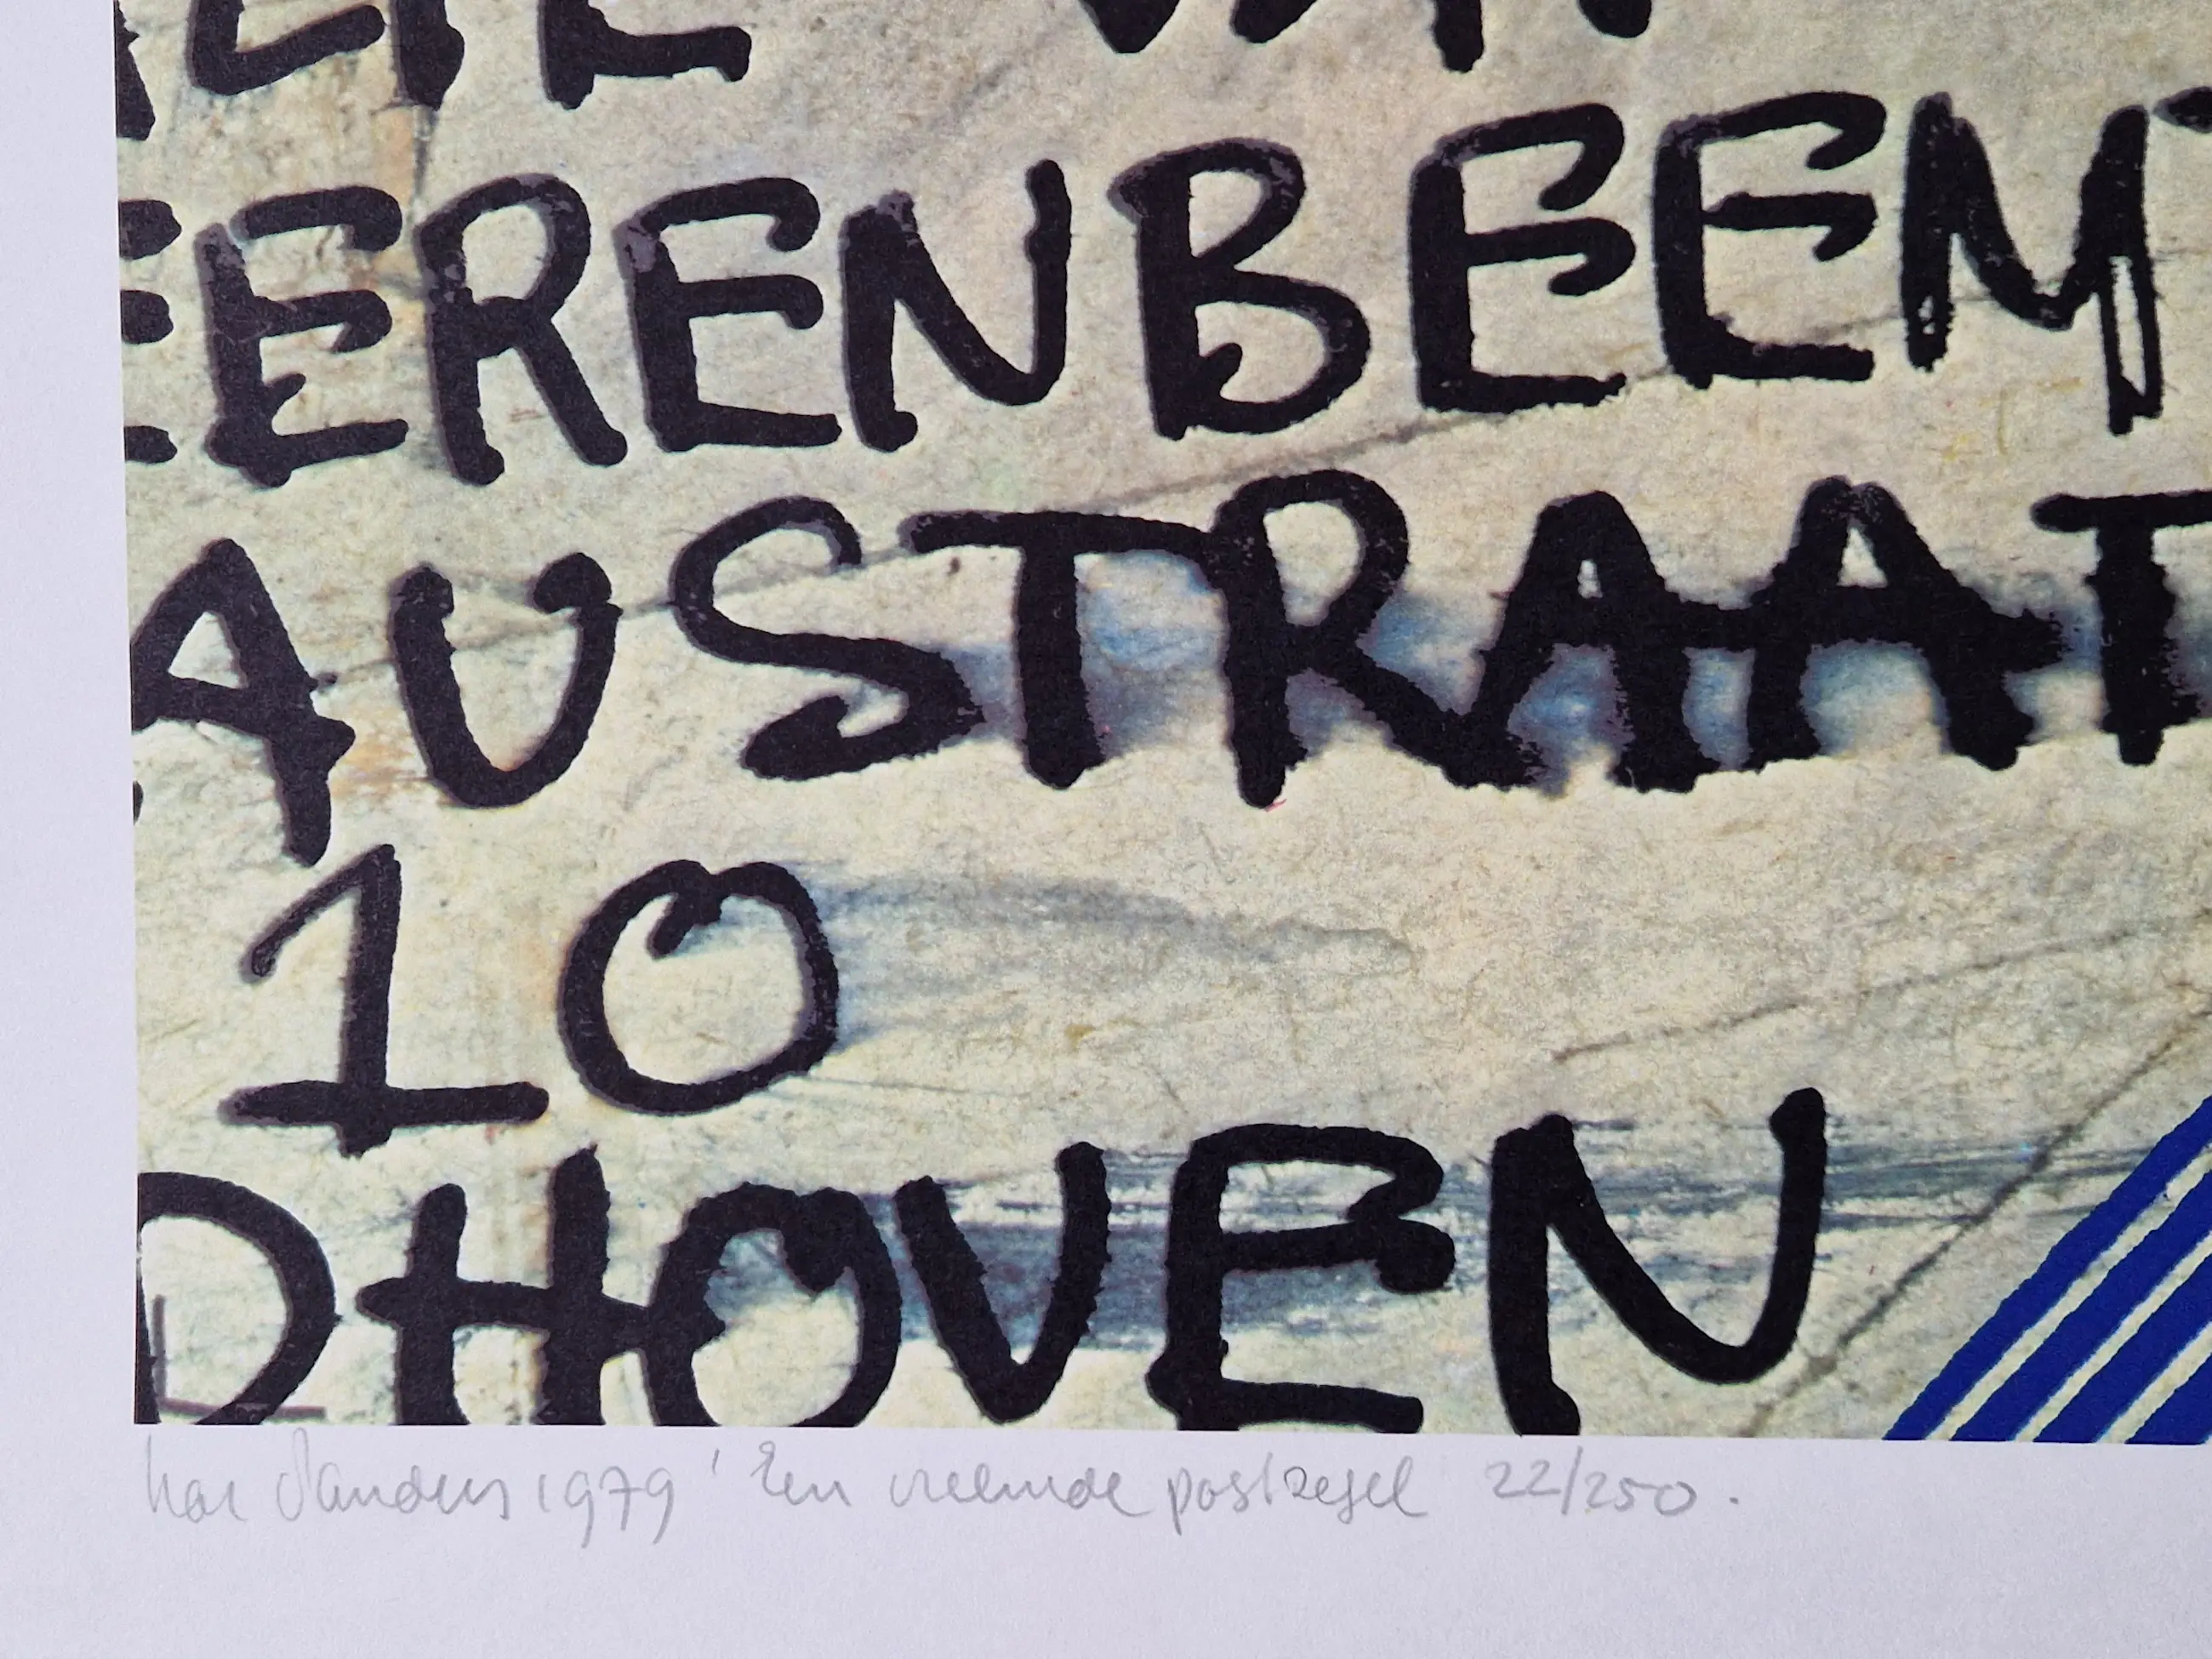 EERENBEEMT
AUSTRAAT
10
DHOVEN
Har Sanders 1979 'Een vreemde postzegel' 22/250.